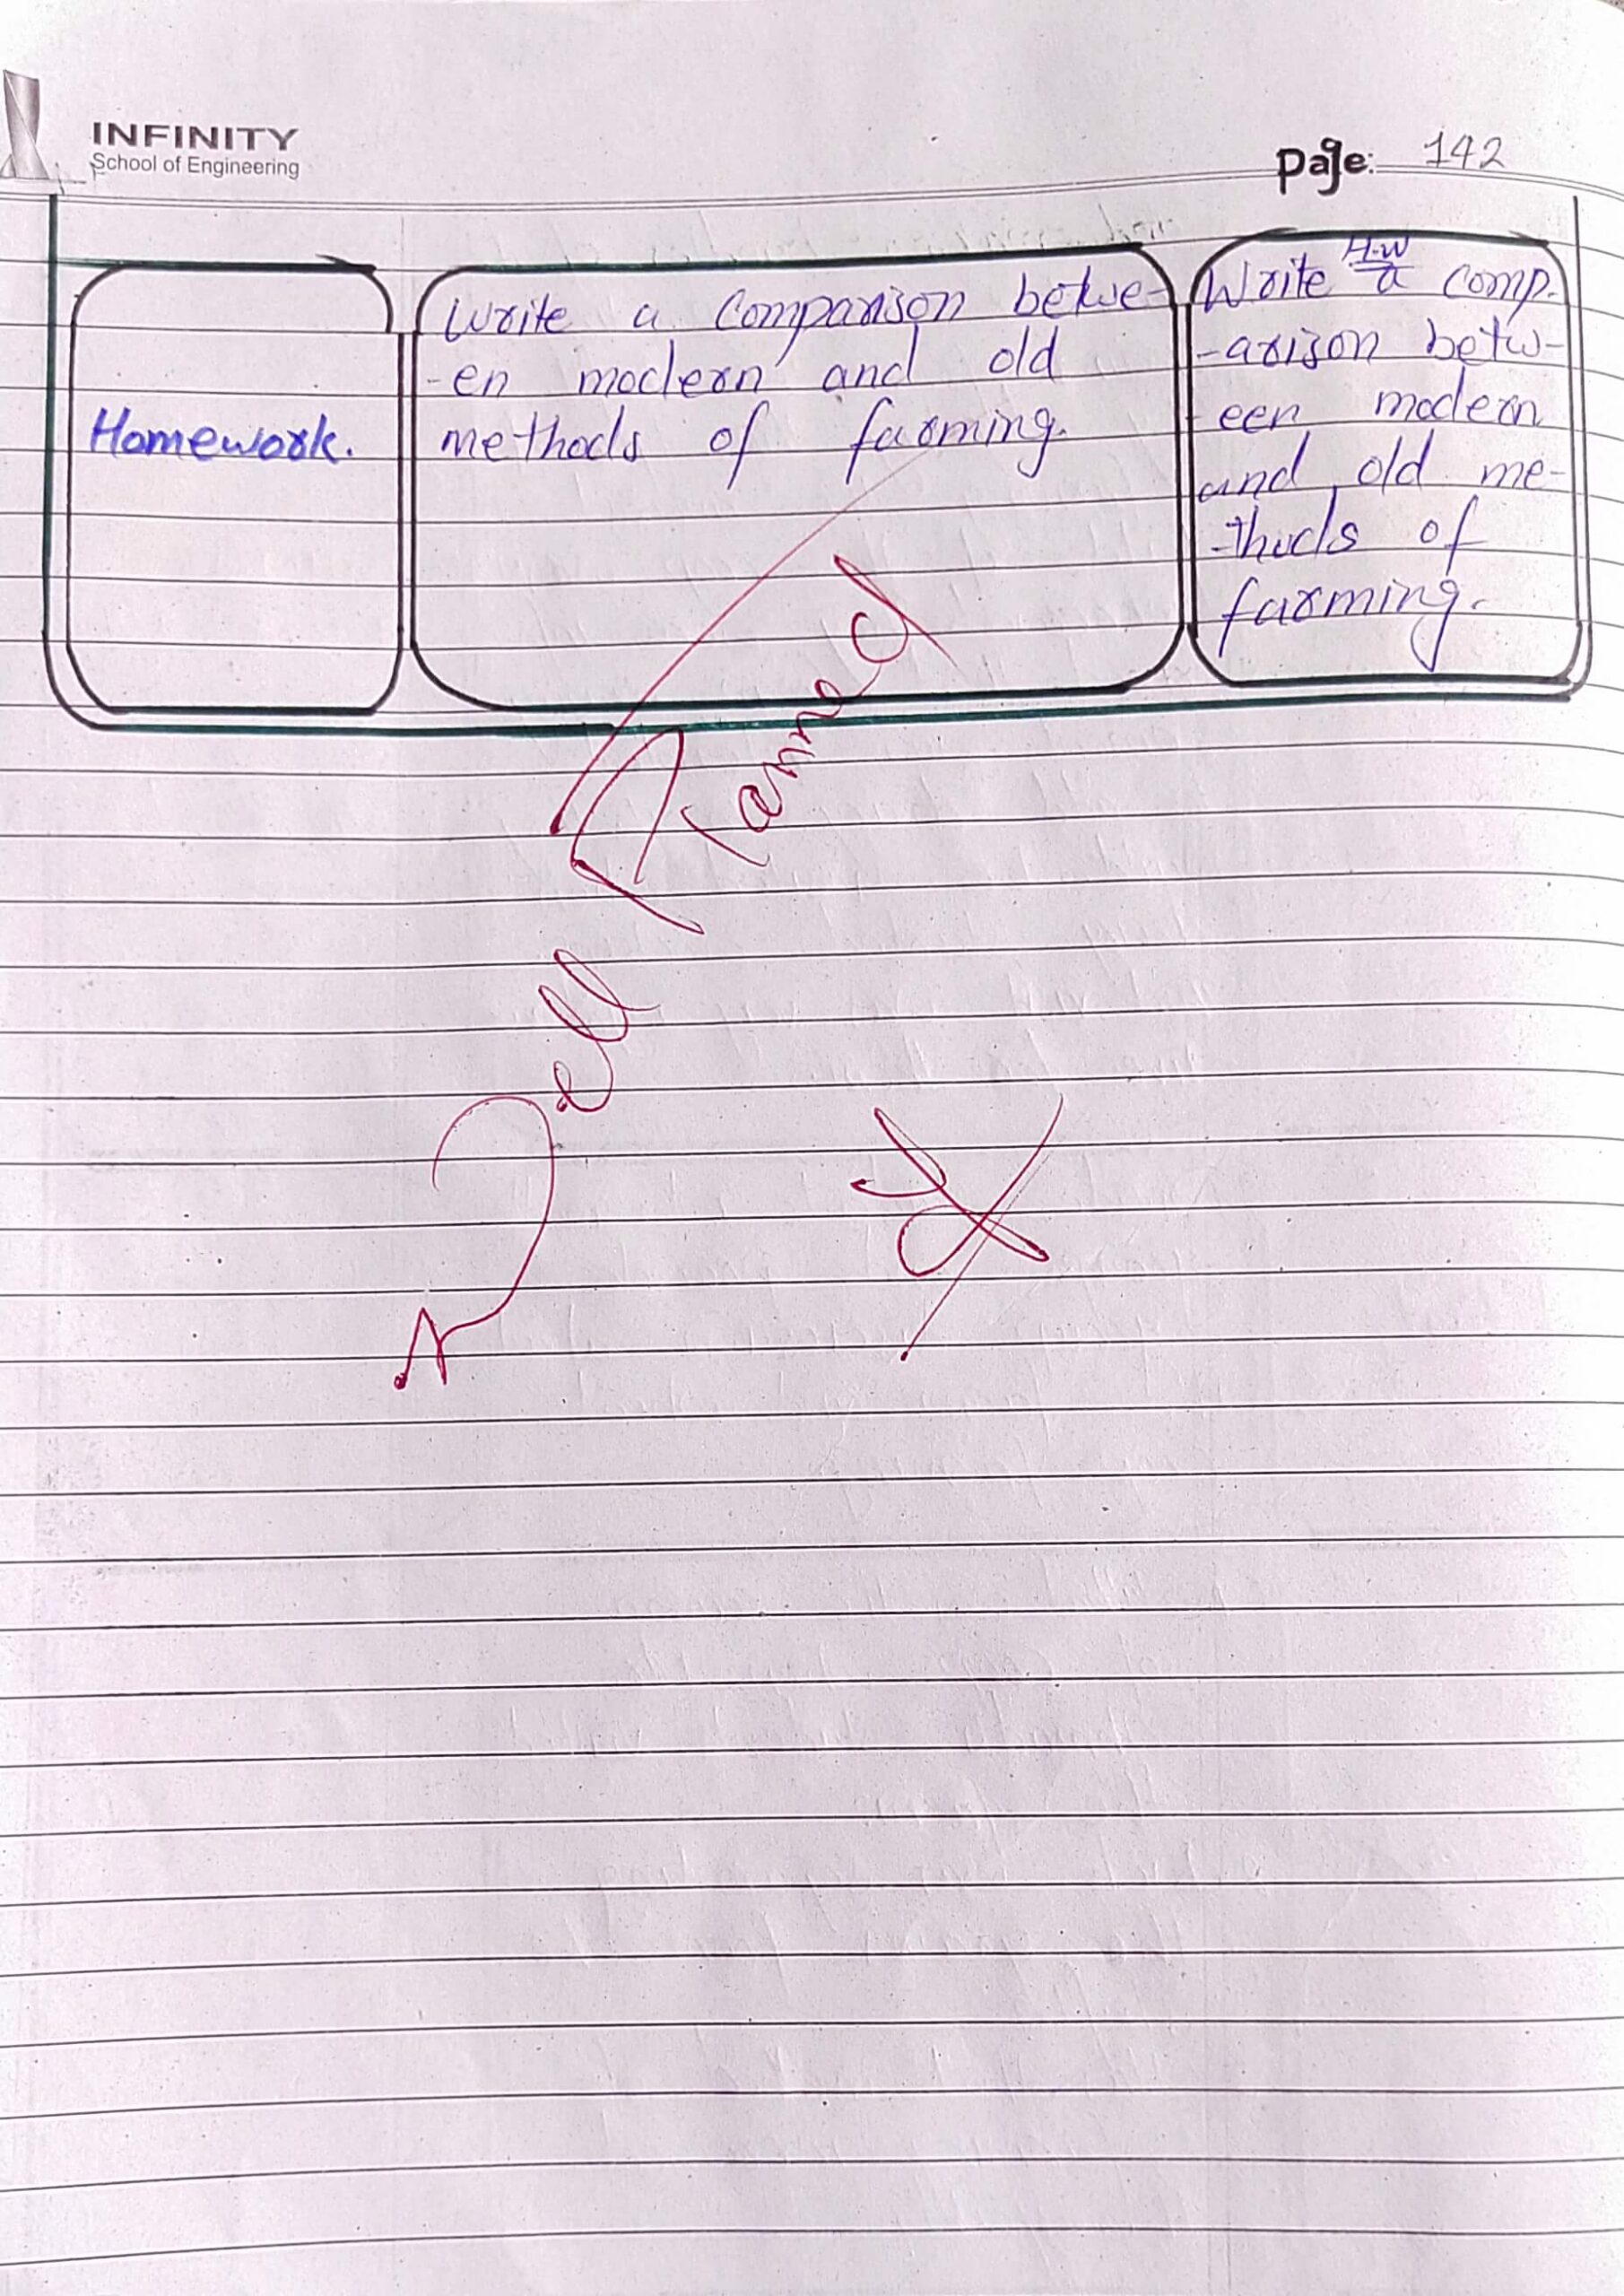 INFINITY
School of Engineering
Page: 142
Homework.
Write a Comparison betwe-
-en modern and old
methods of farming.
H.W
Write a comp-
-arison betw-
een modern
and old me-
-thods of
farming.
Well Planned